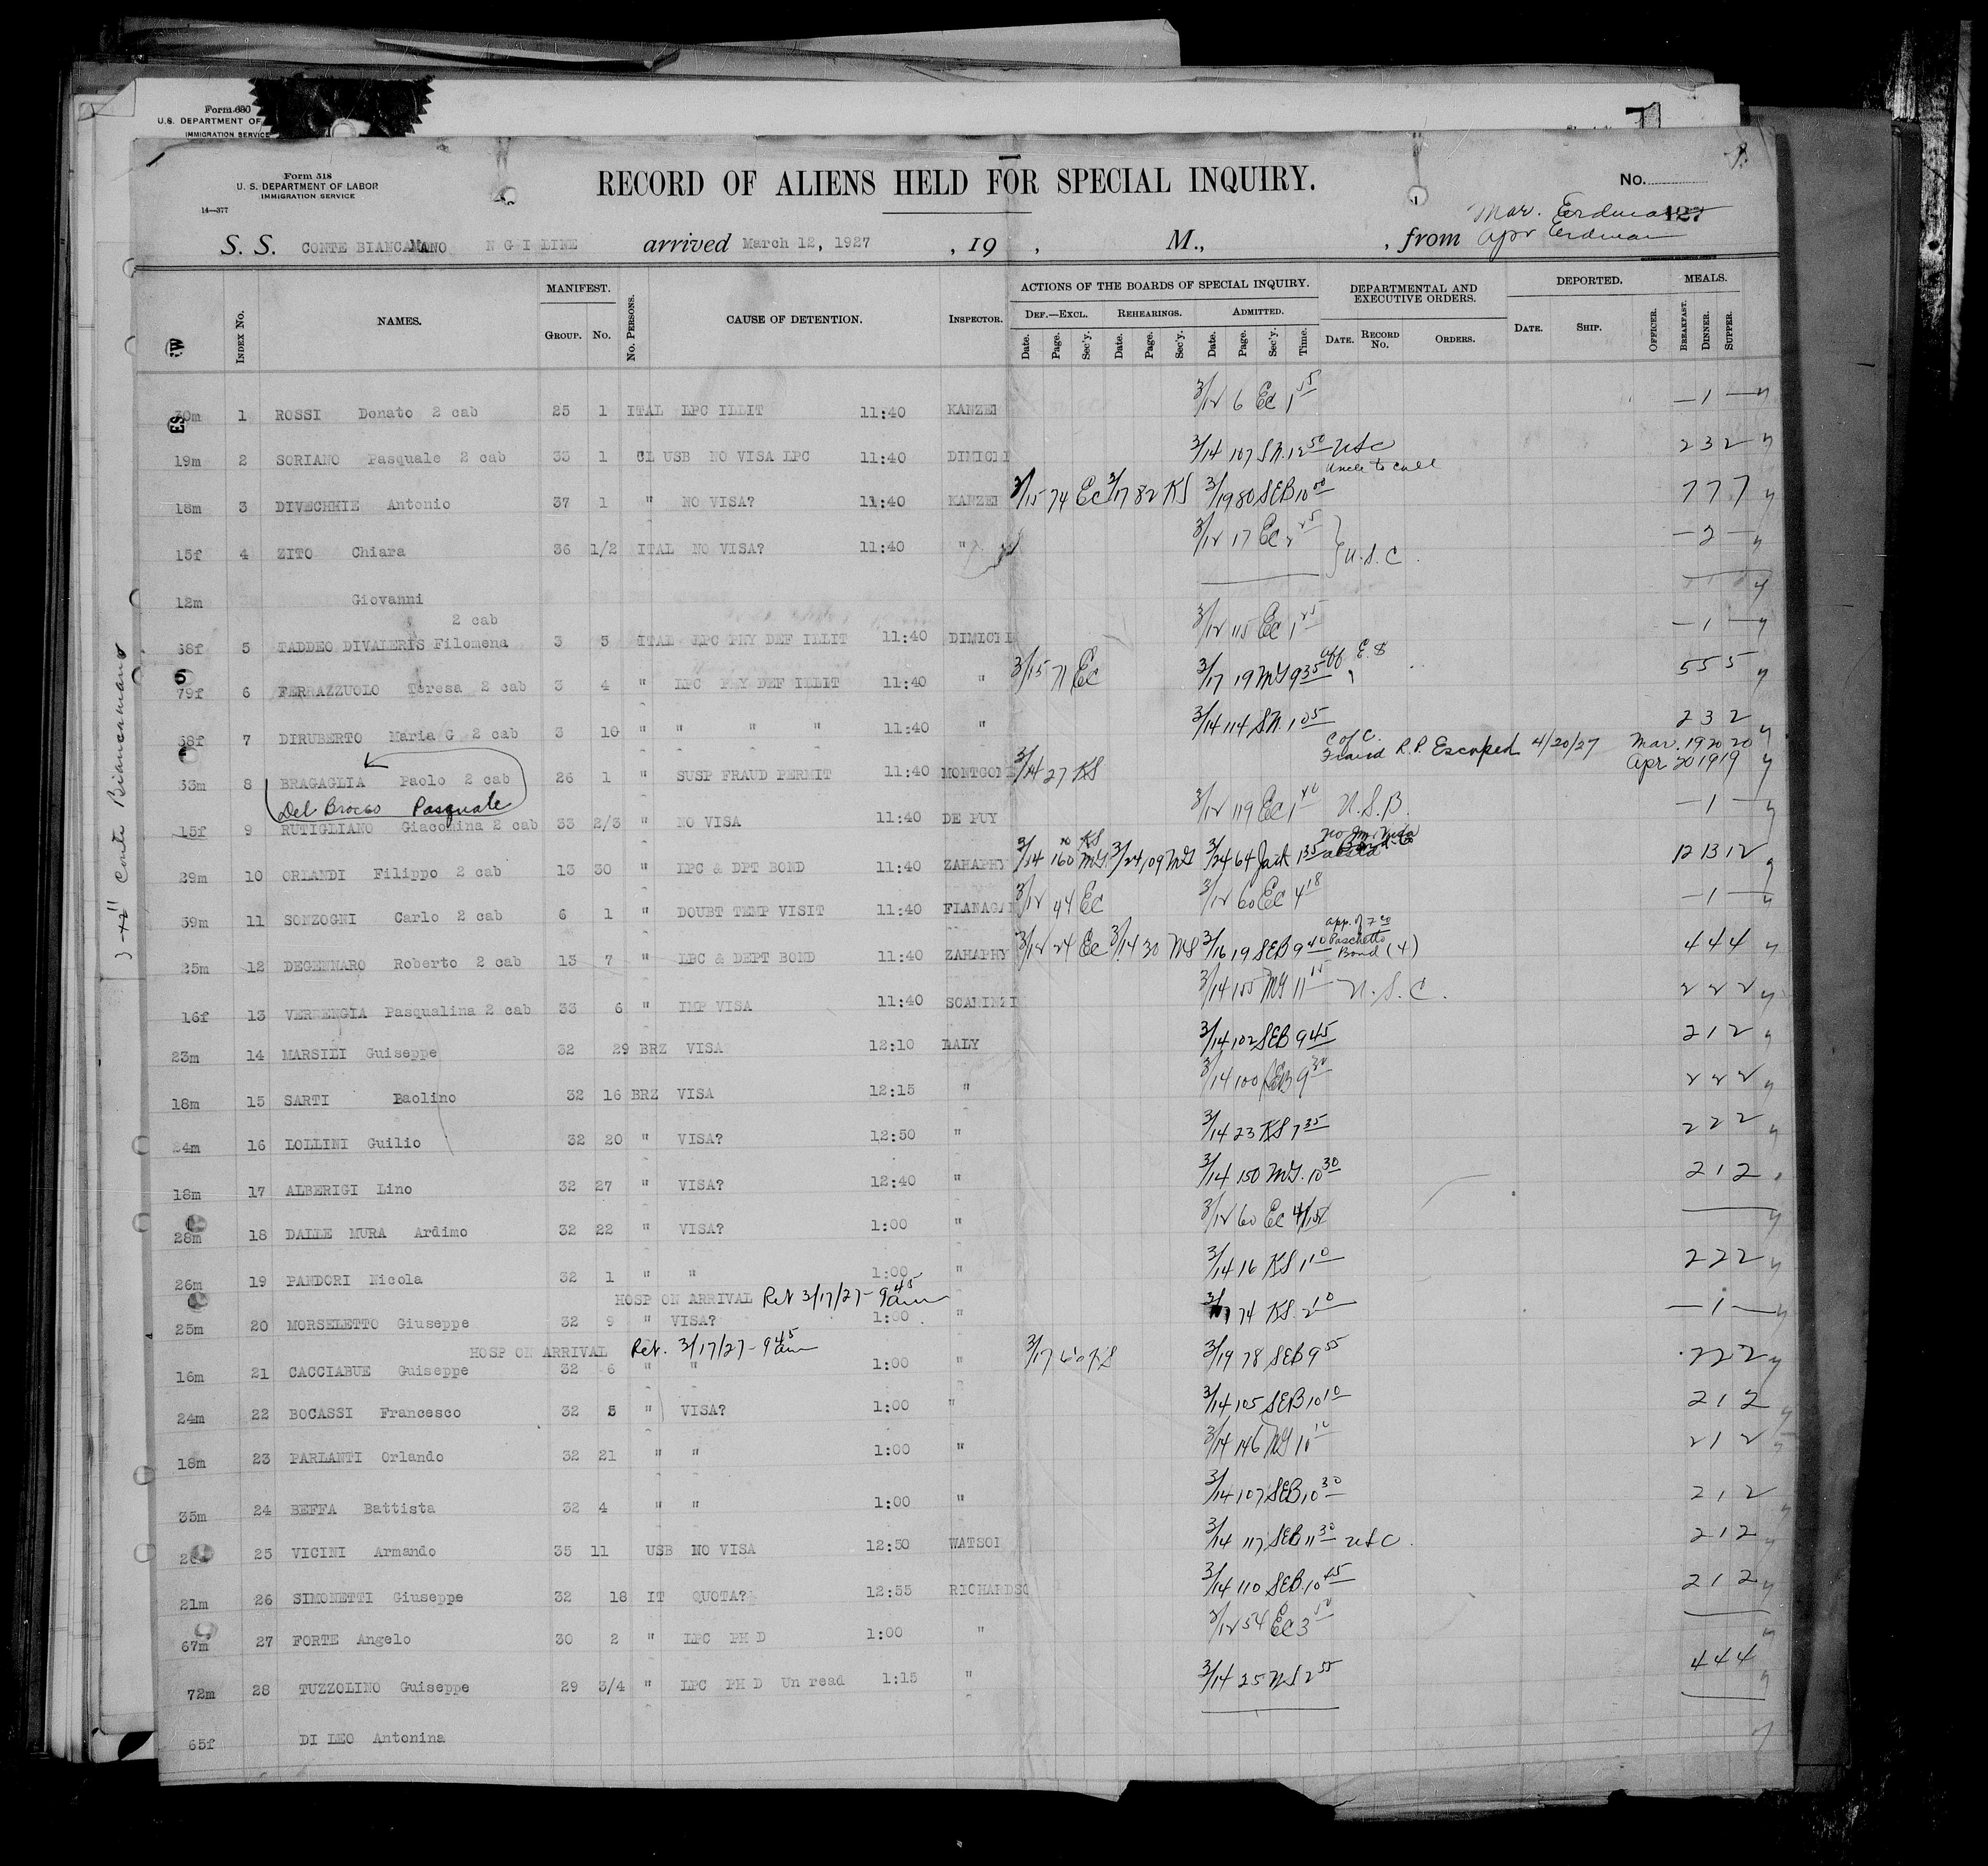 Form 630
U. S. DEPARTMENT OF
IMMIGRATION SERVICE
Form 518
U. S. DEPARTMENT OF LABOR
IMMIGRATION SERVICE
14—377
RECORD OF ALIENS HELD FOR SPECIAL INQUIRY.
No.
127
Mar. Erdman
Apr Erdman
S. S. CONTE BIANCAMANO N G I LINE arrived March 12, 1927 , 19 , M., , from
INDEX No. NAMES. MANIFEST. GROUP. No. No. PERSONS. CAUSE OF DETENTION. INSPECTOR. ACTIONS OF THE BOARDS OF SPECIAL INQUIRY. DEF.—EXCL. REHEARINGS. ADMITTED. DEPARTMENTAL AND EXECUTIVE ORDERS. DEPORTED. MEALS.
Date. Page. Sec'y. Date. Page. Sec'y. Date. Page. Sec'y. Time. DATE. RECORD No. ORDERS. DATE. SHIP. OFFICER. BREAKFAST. DINNER. SUPPER.
30m 1 ROSSI Donato 2 cab 25 1 ITAL LPC ILLIT 11:40 KANZEI 3/12 6 EC 1 15 — 1 —
19m 2 SORIANO Pasquale 2 cab 33 1 CL USB NO VISA LPC 11:40 DIMICHI 3/14 107 SN. 12 50 USC 2 3 2
Uncle to call
18m 3 DIVECHHIE Antonio 37 1 " NO VISA? 11:40 KANZEI 3/15 74 EC 3/17 82 KS 3/19 80 SEB 10 00 7 7 7
15f 4 ZITO Chiara 36 1/2 ITAL NO VISA? 11:40 " 3/12 17 EC 2 25 U.S.C. — 2 —
12m Giovanni
2 cab
68f 5 TADDEO DIVALERIS Filomena 3 5 ITAL LPC PHY DEF ILLIT 11:40 DIMICHI 3/12 115 EC 1 25 — 1 —
79f 6 FERRAZZUOLO Teresa 2 cab 3 4 " LPC PHY DEF ILLIT 11:40 " 3/15 71 EC 3/17 19 MG 9 35 5 5 5
58f 7 DIRUBERTO Maria G 2 cab 3 10 " " " " 11:40 " 3/14 114 SN. 1 05 2 3 2
33m 8 BRAGAGLIA Paolo 2 cab 26 1 " SUSP FRAUD PERMIT 11:40 MONTGOME 3/14 27 KS C of C. Fraud R.P. Escaped 4/20/27 Mar. 19 20 20
Apr 20 19 19
Del Brocco Pasquale
15f 9 RUTIGLIANO Giacomina 2 cab 33 2/3 " NO VISA 11:40 DE PUY 3/12 119 EC 1 40 U.S.B. — 1 —
29m 10 ORLANDI Filippo 2 cab 13 30 " LPC & DPT BOND 11:40 ZAHAPHY 3/14 160 MG. 3/24 109 MG 3/24 64 Jack 1 35 12 13 12
59m 11 SONZOGNI Carlo 2 cab 6 1 " DOUBT TEMP VISIT 11:40 FLANAGAN 3/12 44 EC 3/12 60 EC 4 18 — 1 —
25m 12 DEGENNARO Roberto 2 cab 13 7 " LPC & DEPT BOND 11:40 ZAHAPHY 3/12 24 EC 3/14 30 NS 3/16 19 SEB 9 40 Bond (4) 4 4 4
16f 13 VERRENGIA Pasqualina 2 cab 33 6 " IMP VISA 11:40 SCARINZI 3/14 155 MG 11 15 U.S.C. 2 2 2
23m 14 MARSILI Guiseppe 32 29 BRZ VISA 12:10 DALY 3/14 102 SEB 9 45 2 1 2
18m 15 SARTI Paolino 32 16 BRZ VISA 12:15 " 3/14 100 SEB 9 30 2 2 2
24m 16 LOLLINI Guilio 32 20 " VISA? 12:50 " 3/14 23 KS 7 35 2 2 2
18m 17 ALBERIGI Lino 32 27 " VISA? 12:40 " 3/14 150 MG. 10 30 2 1 2
28m 18 DALLE MURA Ardimo 32 22 " VISA? 1:00 " 3/12 60 EC 4/15
26m 19 PANDORI Nicola 32 1 " " 1:00 " 3/14 16 KS 1 10 2 2 2
HOSP ON ARRIVAL Ret 3/17/27 - 9 45 am
25m 20 MORSELETTO Giuseppe 32 9 " VISA? 1:00 " 3/17 74 KS. 2 10 — 1 —
HOSP ON ARRIVAL Ret. 3/17/27 - 9 45 am
16m 21 CACCIABUE Guiseppe 32 6 " " 1:00 " 3/17 60 KS 3/19 78 SEB 9 55 2 2 2
24m 22 BOCASSI Francesco 32 5 " VISA? 1:00 " 3/14 105 SEB 10 10 2 1 2
18m 23 PARLANTI Orlando 32 21 " " 1:00 " 3/14 146 MG 10 10 2 1 2
35m 24 BEFFA Battista 32 4 " " 1:00 " 3/14 107 SEB 10 30 2 1 2
25 VICINI Armando 35 11 USB NO VISA 12:50 WATSON 3/14 117 SEB 11 30 USC 2 1 2
21m 26 SIMONETTI Giuseppe 32 18 IT QUOTA? 12:55 RICHARDSO 3/14 110 SEB. 10 45 2 1 2
67m 27 FORTE Angelo 30 2 " LPC PH D 1:00 " 3/12 54 EC 3 50
72m 28 TUZZOLINO Guiseppe 29 3/4 " LPC PH D Un read 1:15 " 3/14 25 NS 2 55 4 4 4
65f DI LEO Antonina
Conte Biancamano